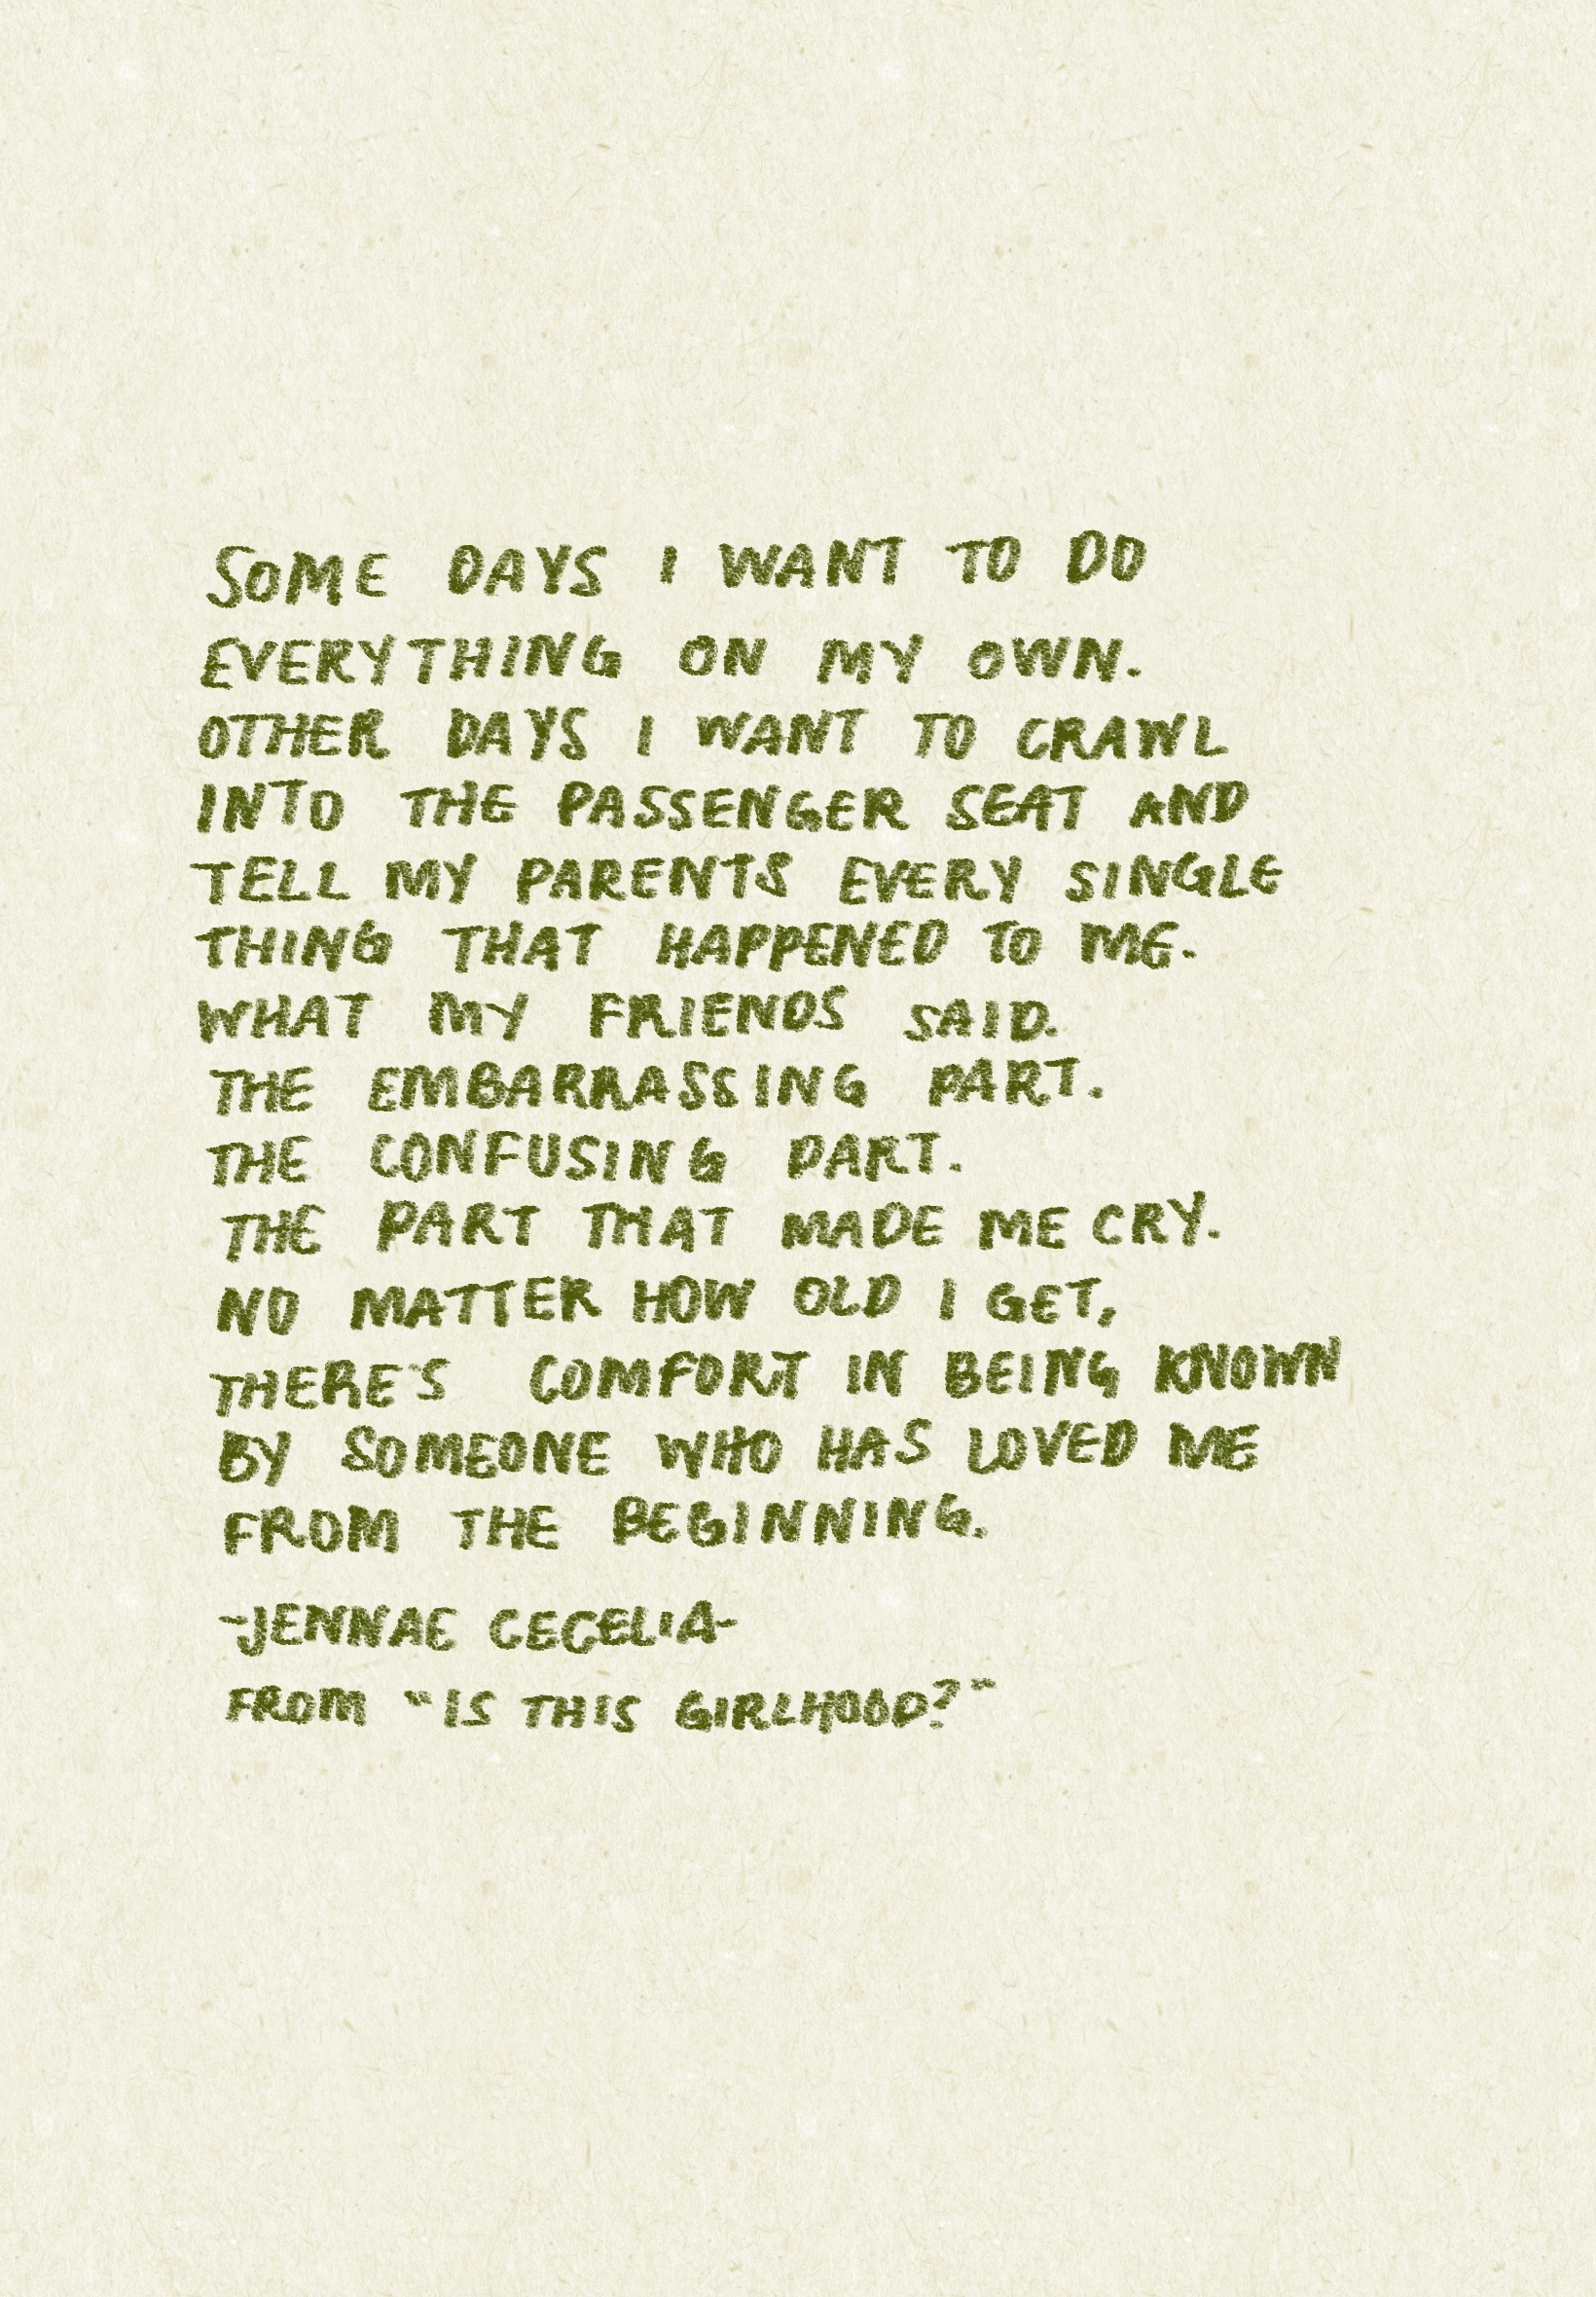 SOME DAYS I WANT TO DO
EVERYTHING ON MY OWN.
OTHER DAYS I WANT TO CRAWL
INTO THE PASSENGER SEAT AND
TELL MY PARENTS EVERY SINGLE
THING THAT HAPPENED TO ME.
WHAT MY FRIENDS SAID.
THE EMBARRASSING PART.
THE CONFUSING PART.
THE PART THAT MADE ME CRY.
NO MATTER HOW OLD I GET,
THERE'S COMFORT IN BEING KNOWN
BY SOMEONE WHO HAS LOVED ME
FROM THE BEGINNING.
-JENNAE CECELIA-
FROM "IS THIS GIRLHOOD?"